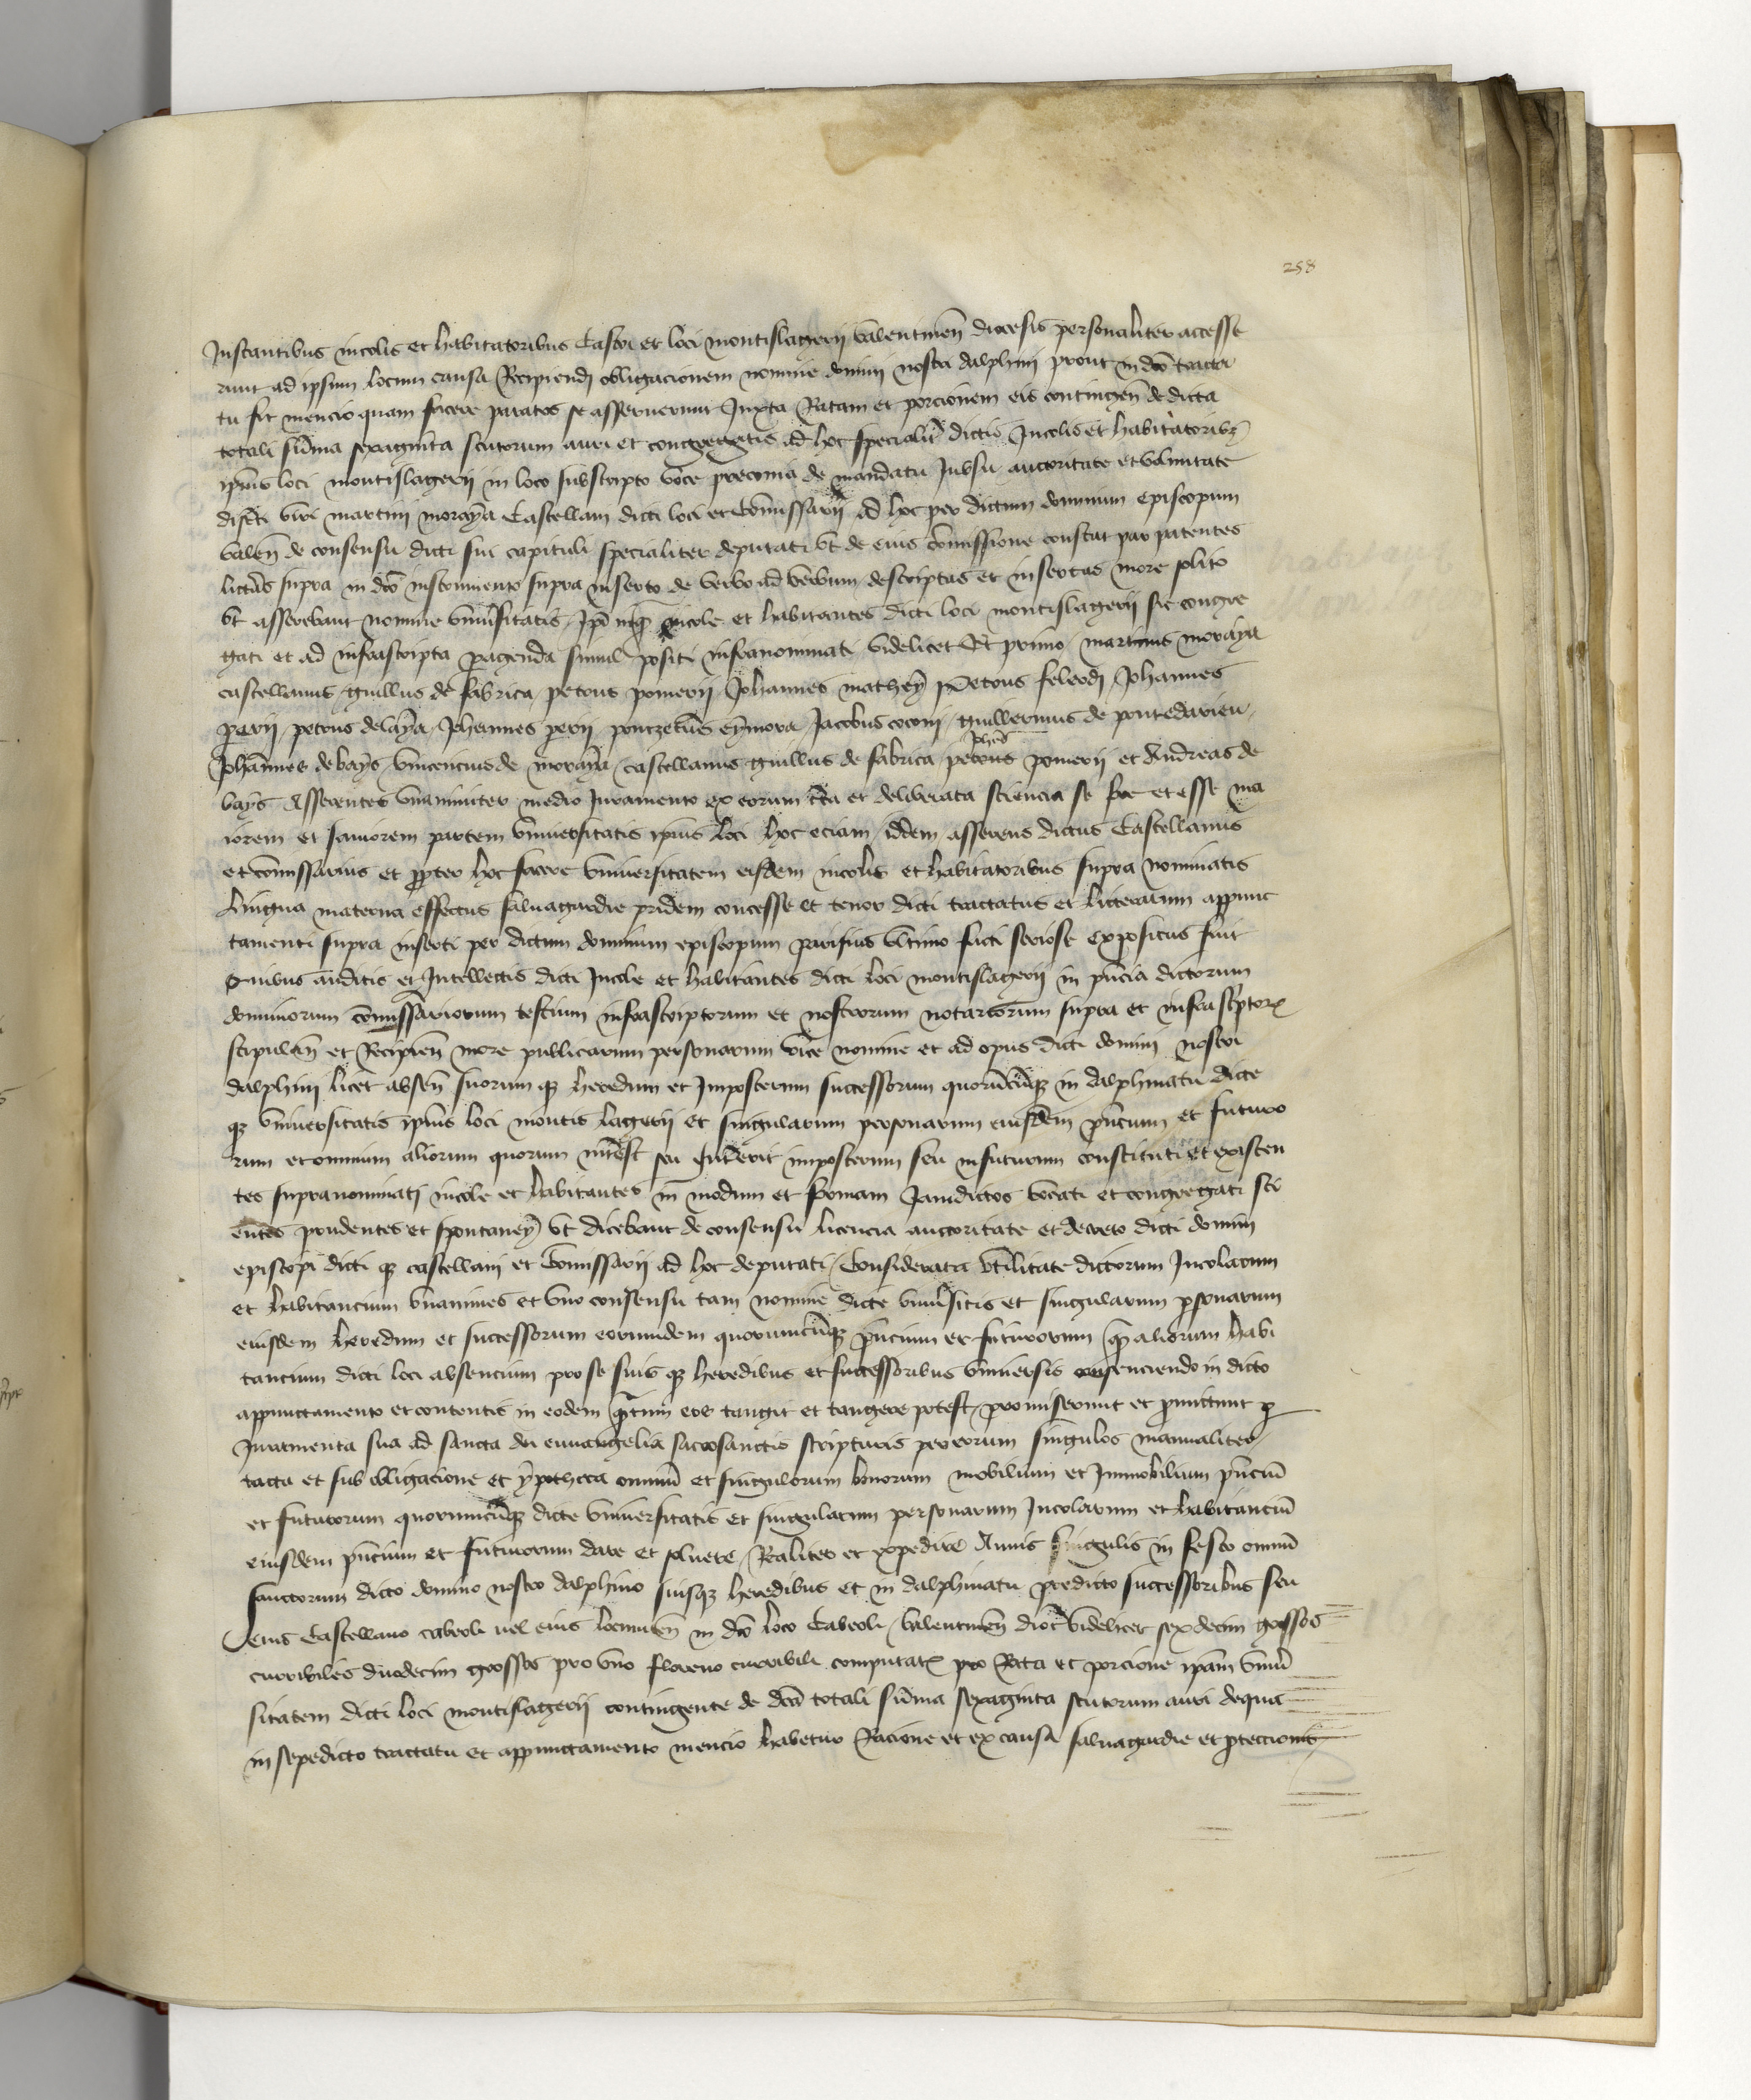 258
Instantibus incolis et habitatoribus Castri et loci montislagerii valentinen̄ diocesis personaliter accesse
runt ad ipsum locum causa Recipiendi obligacionem nomine domini nostri dalphini prout in dc̄o tracta
tu fit mencio quam facere paratos se asseruerunt Juxta Ratam et porcionem eis contingen̄ de dicta
totali sūma sexaginta scutorum auri et congregatis ad hoc specialit̄ dictis Incolis et habitatorib9
ip̄ius loci montislagerii in loco subscripto voce preconia de mandatu Jussu auctoritate et voluntate
discreti viri martini morayia Castellani dicti loci et Com̄issarii ad hoc per dictum dominum episcopum
valen̄ de consensu dicti sui capituli specialiter deputati vt de eius com̄issione constat par patentes
litt̄as supra in dc̄o instrumento supra inserto de verbo ad verbum descriptas et insertas more solito
vt asserebant nomine vniūsitatis Ip̄i incole et habitantes dicti loci montislagerii sic congre
gati et ad infrascripta peragenda simul positi infranominati videlicet Et primo martinus morayia
castellanus guillus de fabrica petrus pomerii Johannes mathey petrus Johannes
perii petrus delaya Johannes perii eymora Jacobus coconi guillermus de
Joh̄es
Johannes de bays vincencius de morayia castellanus guillus de fabrica petrus pomerii et Andreas de
bays Asserentes vnanimiter medio Juramento ex eorum c̄ta et deliberata sciencia se fore et esse ma
iorem et saniorem partem vniuersitatis ip̄ius loci hoc eciam iddem asserens dictus Castellanus
et com̄issarius et propter hoc facere vniuersitatem eisdem incolis et habitatoribus supra nominatis
Lingua materna effectus saluagardie pridem concesse et tenor dicti tractatus et litterarum appunc
tamenti supra inserti per dictum dominum episcopum parisius vltimo facti seriose expositus fuit
Quibus auditis et Intellectis dicti Incole et habitantes dicti loci montislagerii in pn̄cia dictorum
dominorum com̄issariorum testium infrascriptorum et nostrorum notariorum supra et infrascriptor̄
stipulan̄ et Recipien̄ more publicarum personarum vice nomine et ad opus dicti domini nostri
dalphini licet absen̄ suorum q3 heredum et Imposterum successorum quorūcūq3 in dalphinatu dicte
q3 vniuersitatis ip̄ius loci montis lagerii et singularum personarum eiusdem pn̄cium et futuro
rum et omnium aliorum quorum int̄est seu Int̄erit imposterum seu infuturum constituti et existen
tes supranominati incole et habitantes in modum et formam Jamdictos vocati et congregati sci
entes prudentes et spontaney vt dicebant de consensu licencia auctoritate et decreto dicti domini
episcopi dicti q3 castellani et Com̄issarii ad hoc deputati Considerata vtilitate dictorum Incolarum
et habitancium vnanimes et vno consensu tam nomine dicte vniūsitis et singularum p̄sonarum
eiusdem heredum et successorum eorumdem quorumcūq3 pn̄cium et futurorum q̄ aliorum habi
tancium dicti loci absencium pro se suis q3 heredibus et successoribus vniuersis consenciendo in dicto
appunctamento et contentis in eodem q̄tum eos tangit et tangere potest promiserunt et promittunt p̄
Juramenta sua ad sancta dei euuangelia sacrosanctis scripturis per eorum singulos manualiter
tacta et sub obligacione et ypotheca omniū et singulorum bonorum mobilium et Immobilium pn̄ciū
et futurorum quorumcūq3 dicte vniuersitatis et singularum personarum Incolarum et habitanciū
eiusdem pn̄cium et futurorum dare et soluere Realiter et expedite Annis singulis in festo omniū
sanctorum dicto domino nostro dalphino suisq3 heredibus et in dalphinatu predicto successoribus seu
eius Castellano cabeoli uel eius locumten̄ in dc̄o loco Cabeoli valentinen̄ dioc̄ videlicet sexdecim grossos
curribiles duodecim grossos pro vno floreno curribili computat̄ pro Rata et porcione ip̄am vniū
sitatem dicti loci montislagerii contingente de dc̄a totali sūma sexaginta scutorum auri dequa
in sepedicto tractatu et appunctamento mencio habetur Racione et ex causa saluagardie et proteccionis